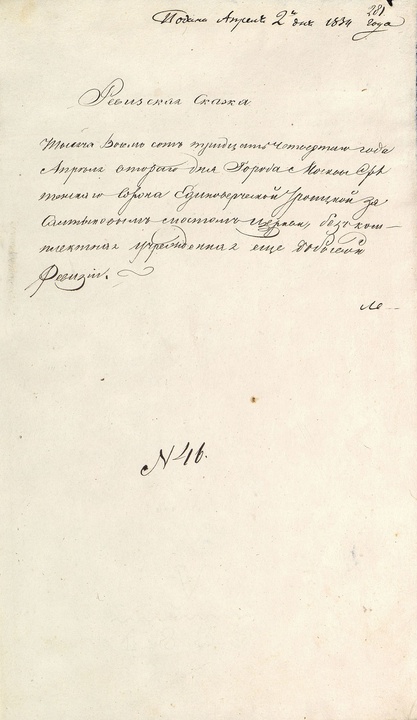 281
Подана Апреля 2го дня 1834 года
Ревизская Сказка
Тысяча Восмь сотъ тридцать четвертаго года
Апреля втораго дня Города Москвы Срѣ
тенскаго Сорока Единоверческой Троицкой за
Салтыковымъ мостомъ церкви, безъ ком-
плектная учрежденная еще до
Ревизіи.
№ 46.